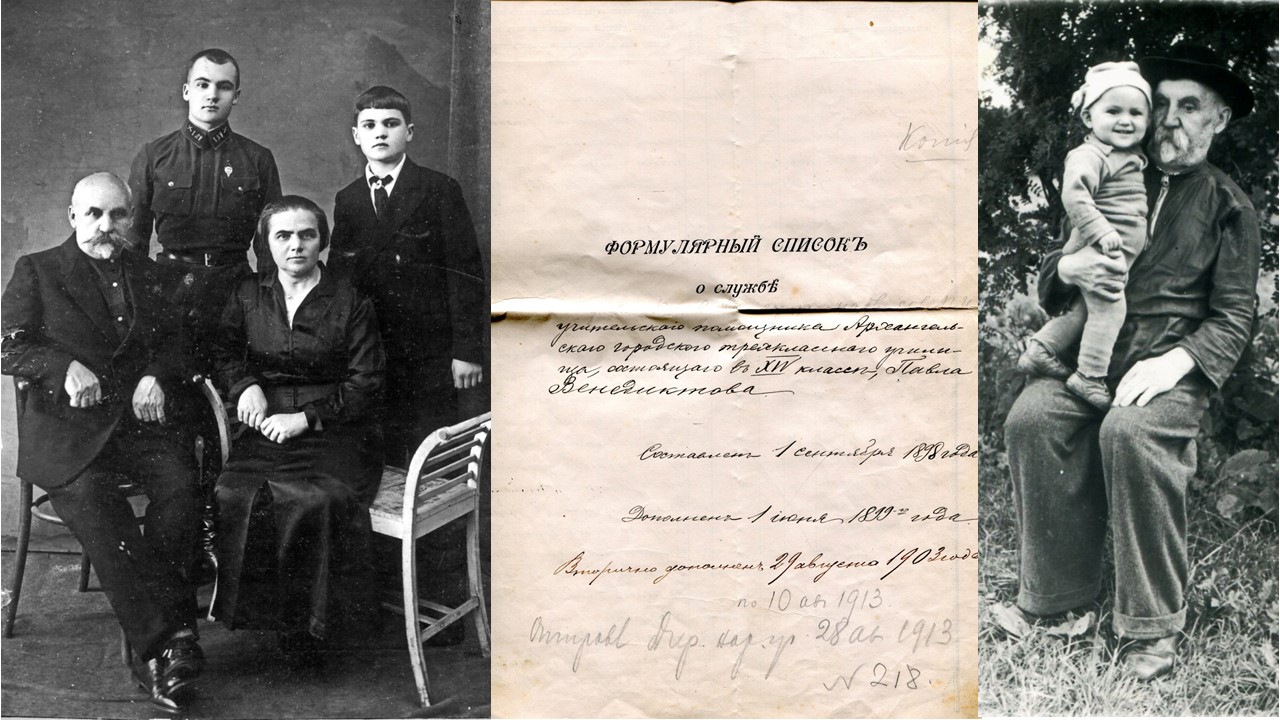 ФОРМУЛЯРНЫЙ СПИСОКЪ
о службѣ
учительского помощника Архангель-
скаго городского трехкласснаго учили-
ща, состоящаго въ XIV классѣ, Павла
Венедиктова.
Составленъ 1 сентября 1898 года
Дополненъ 1 июня 1899 года.
Вторично дополненъ 29 августа 1903 года
по 10 авг 1913.
28 ав 1913
N 218.